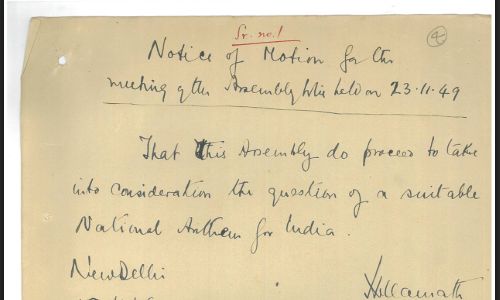 Sr. no. 1
4
Notice of Motion for the
meeting of the Assembly to be held on 23.11.49
That this Assembly do proceed to take
into consideration the question of a suitable
National Anthem for India.
New Delhi